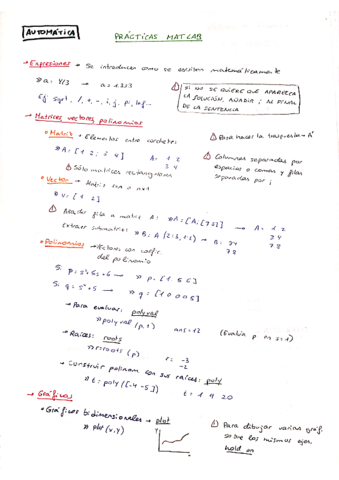 AUTOMÁTICA
PRÁCTICAS MATLAB
→ Expresiones → Se introducen como se escriben matemáticamente
» a = 4/3 → a = 1.333
Ej: sqrt, /, +, -, i, j, pi, Inf...
⚠ SI NO SE QUIERE QUE APAREZCA
LA SOLUCIÓN, AÑADIR ; AL FINAL
DE LA SENTENCIA
→ Matrices vectores polinomios
• Matriz → Elementos entre corchetes
» A = [1 2; 3 4] A = 1 2
3 4
⚠ Sólo matrices rectangulares
⚠ Para hacer la traspuesta → A'
⚠ Columnas separadas por
espacios o comas y filas
separadas por ;
• Vector → Matriz 1xn o nx1
» v = [1 2]
⚠ Añadir fila a matriz A: » A = [A; [7 8]] → A = 1 2
3 4
7 8
Extraer submatriz: » B = A (2:3, 1:2) → B = 3 4
7 8
• Polinomios → Vectores con coefic.
del polinomio
Si p = s²+5s+6 → » p = [1 5 6]
Si q = s⁴+5 → » q = [1 0 0 0 5]
→ Para evaluar: polyval
» polyval (p, 1) ans = 12 (Evalúa p en s=1)
→ Raíces: roots
» r = roots (p) r = -3
-2
→ Construir polinom con sus raíces: poly
» t = poly ([-4 -5]) t = 1 9 20
→ Gráficos
• Gráficos bidimensionales → plot
» plot (x, y)
y
x
⚠ Para dibujar varias gráf.
sobre los mismos ejes:
hold on